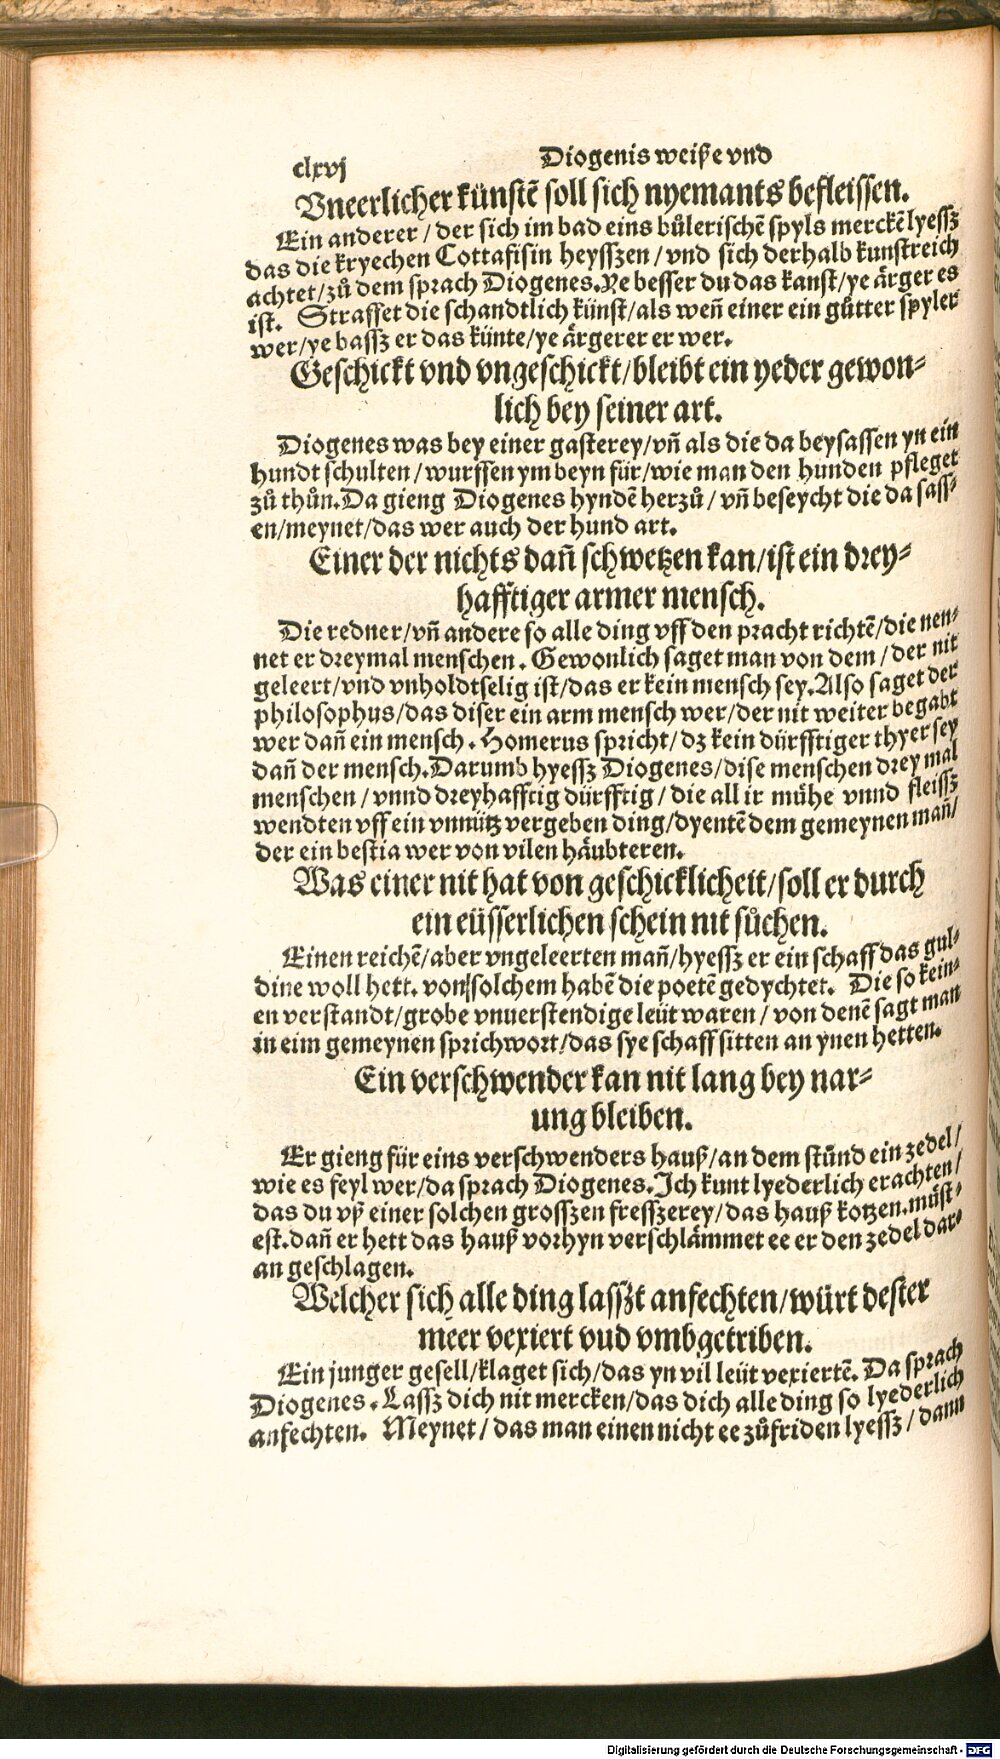 clxvj Diogenis weiße vnd
Vneerlicher künstẽ soll sich nyemants befleissen.
Ein anderer / der sich im bad eins bůlerischẽ spyls merckẽ lyessz
das die kryechen Cottafisin heysszen / vnd sich derhalb kunstreich
achtet / zů dem sprach Diogenes. Ye besser du das kanst / ye ärger es
ist. Straffet die schandtlich künst / als weñ einer ein gůtter spyler
wer / ye bassz er das künte / ye ärgerer er wer.
Geschickt vnd vngeschickt / bleibt ein yeder gewon⸗
lich bey seiner art.
Diogenes was bey einer gasterey / vñ als die da beysassen yn ein
hundt schulten / wurffsen ym beyn für / wie man den hunden pfleget
zů thůn. Da gieng Diogenes hyndẽ herzů / vñ beseycht die da sass⸗
en / meynet / das wer auch der hund art.
Einer der nichts dañ schwetzen kan / ist ein drey⸗
hafftiger armer mensch.
Die redner / vñ andere so alle ding vff den pracht richtẽ / die nen⸗
net er dreymal menschen. Gewonlich saget man von dem / der nit
geleert / vnd vnholdtselig ist / das er kein mensch sey. Also saget der
philosophus / das diser ein arm mensch wer / der nit weiter begabt
wer dañ ein mensch. Homerus spricht / dz kein dürfftiger thyer sey
dañ der mensch. Darumb hyessz Diogenes / dise menschen drey mal
menschen / vnnd dreyhafftig dürfftig / die all ir mühe vnnd fleissz
wendten vff ein vnnütz vergeben ding / dyentẽ dem gemeynen mañ /
der ein bestia wer von vilen häubteren.
Was einer nit hat von geschicklicheit / soll er durch
ein eüsserlichen schein nit sůchen.
Einen reichẽ / aber vngeleerten mañ / hyessz er ein schaff das gul⸗
dine woll hett. von solchem habẽ die poetẽ gedychtet. Die so kein⸗
en verstandt / grobe vnuerstendige leüt waren / von denẽ sagt man
in eim gemeynen sprichwort / das sye schaff sitten an ynen hetten.
Ein verschwender kan nit lang bey nar⸗
ung bleiben.
Er gieng für eins verschwenders hauß / an dem stůnd ein zedel /
wie es feyl wer / da sprach Diogenes. Ich kunt lyederlich erachten /
das du vß einer solchen grosszen fresszerey / das hauß kotzen. můst⸗
est. dañ er hett das hauß vorhyn verschlämmet ee er den zedel dar⸗
an geschlagen.
Welcher sich alle ding lasszt anfechten / würt dester
meer vexiert vud vmbgetriben.
Ein junger gesell / klaget sich / das yn vil leüt vexiertẽ. Da sprach
Diogenes. Lassz dich nit mercken / das dich alle ding so lyederlich
anfechten. Meynet / das man einen nicht ee zůfriden lyessz / dann
Digitalisierung gefördert durch die Deutsche Forschungsgemeinschaft - DFG